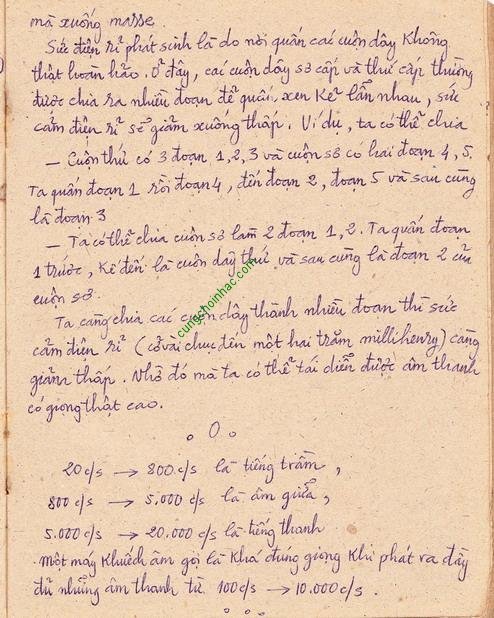 mà xuống masse.
Sức điện rỉ phát sinh là do nơi quấn các cuộn dây không
thật hoàn hảo. Ở đây, các cuộn dây sơ cấp và thứ cấp thường
được chia ra nhiều đoạn để quấn xen kẽ lẫn nhau, sức
cảm điện rỉ sẽ giảm xuống thấp. Ví dụ, ta có thể chia
– Cuộn thứ có 3 đoạn 1, 2, 3 và cuộn sơ có hai đoạn 4, 5.
Ta quấn đoạn 1 rồi đoạn 4, đến đoạn 2, đoạn 5 và sau cùng
là đoạn 3
– Ta có thể chia cuộn sơ làm 2 đoạn 1, 2. Ta quấn đoạn
1 trước, kế đến là cuộn dây thứ và sau cùng là đoạn 2 của
cuộn sơ.
Ta càng chia các cuộn dây thành nhiều đoạn thì sức
cảm điện rỉ (cỡ vài chục đến một hai trăm millihenry) càng
giảm thấp. Nhờ đó mà ta có thể tái diễn được âm thanh
có giọng thật cao.
o O o
20 c/s → 800 c/s là tiếng trầm,
800 c/s → 5.000 c/s là âm giữa,
5.000 c/s → 20.000 c/s là tiếng thanh
Một máy khuếch âm gọi là khá đúng giọng khi phát ra đầy
đủ những âm thanh từ 100 c/s → 10.000 c/s.
o o o
cungchoinhac.com